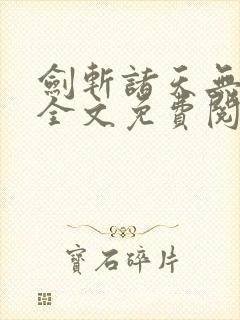 劍斬諸天無
全文免費閱
寶石碎片